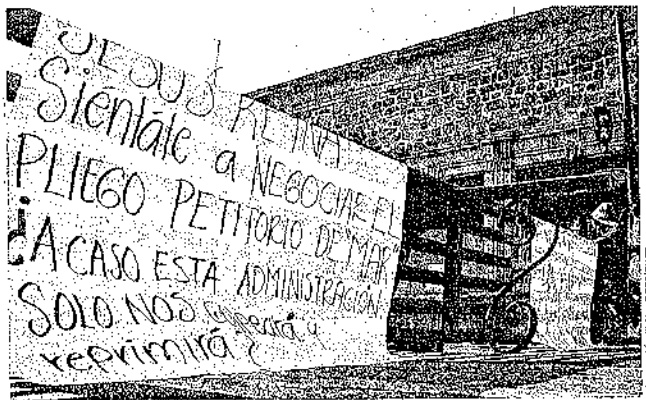 JESUS REYNA
Siéntate a NEGOCIAR EL
PLIEGO PETITORIO DE MAR
¿ACASO ESTA ADMINISTRACIÓN
SOLO NOS y
reprimirá?